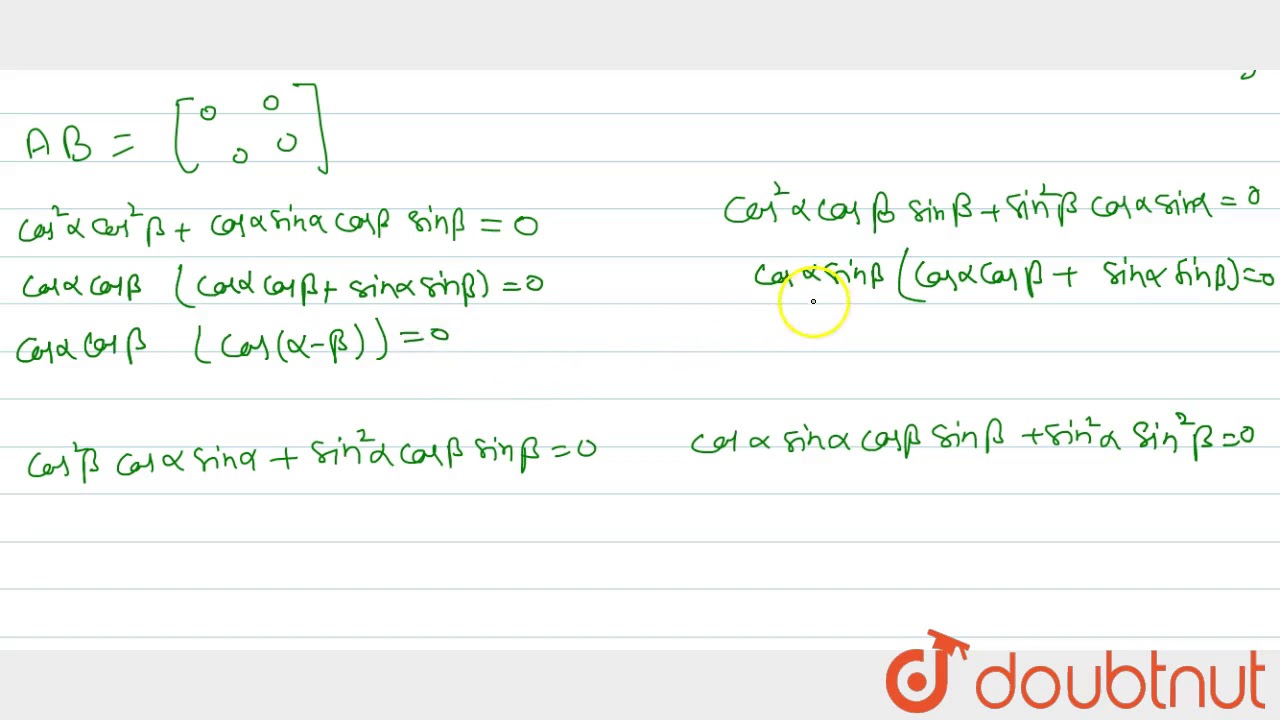 AB = [0 0
0 0]
cos²α cos²β + cosα sinα cosβ sinβ = 0
cosα cosβ (cosα cosβ + sinα sinβ) = 0
cosα cosβ (cos(α-β)) = 0
cos²α cosβ sinβ + sin²β cosα sinα = 0
cosα sinβ (cosα cosβ + sinα sinβ) = 0
cos²β cosα sinα + sin²α cosβ sinβ = 0
cosα sinα cosβ sinβ + sin²α sin²β = 0
doubtnut